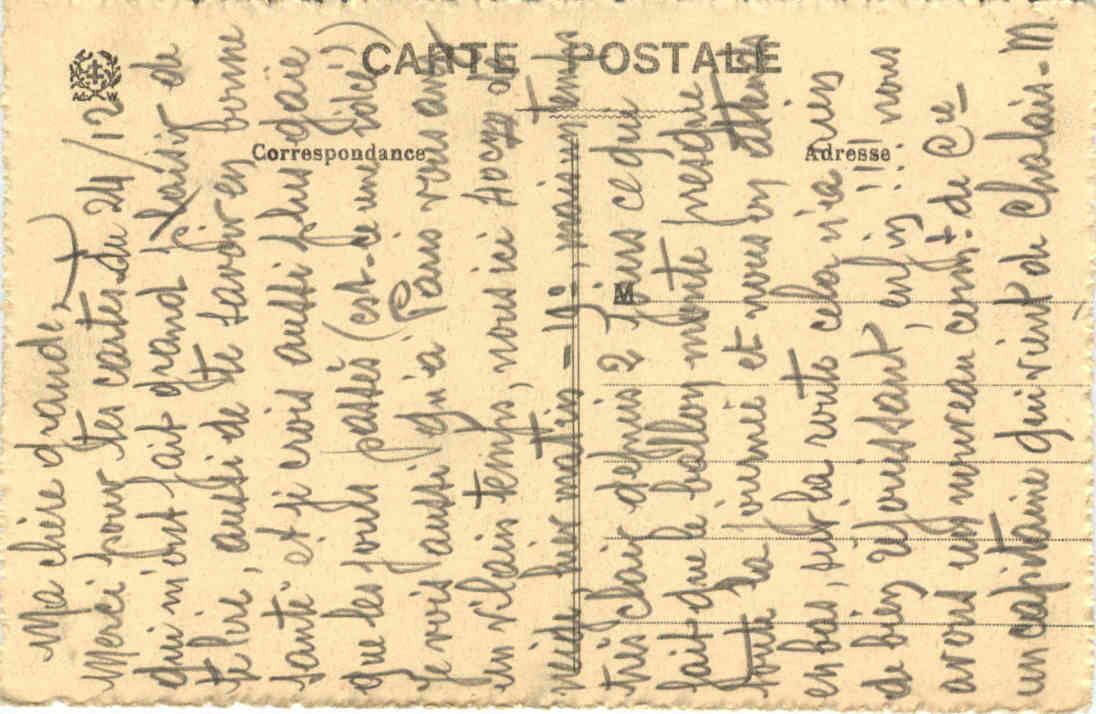 CARTE POSTALE
Correspondance
Adresse
M
A W
Ma chère grande,
Merci pour tes cartes du 24/12
qui m'ont fait grand plaisir de
te lire, aussi de te savoir en bonne
santé et je crois aussi plus gaie
que les jours passés (est-ce une idée!)
Je vois aussi qu'à Paris vous avez
un vilain temps, nous ici
hier matin -10. maint temps
très clair depuis 2 jours ce qui
fait que le ballon monte presque
toute la journée et nous en attend
en bas, sur la route cela n'a rien
de bien réjouissant, enfin!!! nous
avons un nouveau com.t de Cie
un capitaine qui vient de Chalais-M.